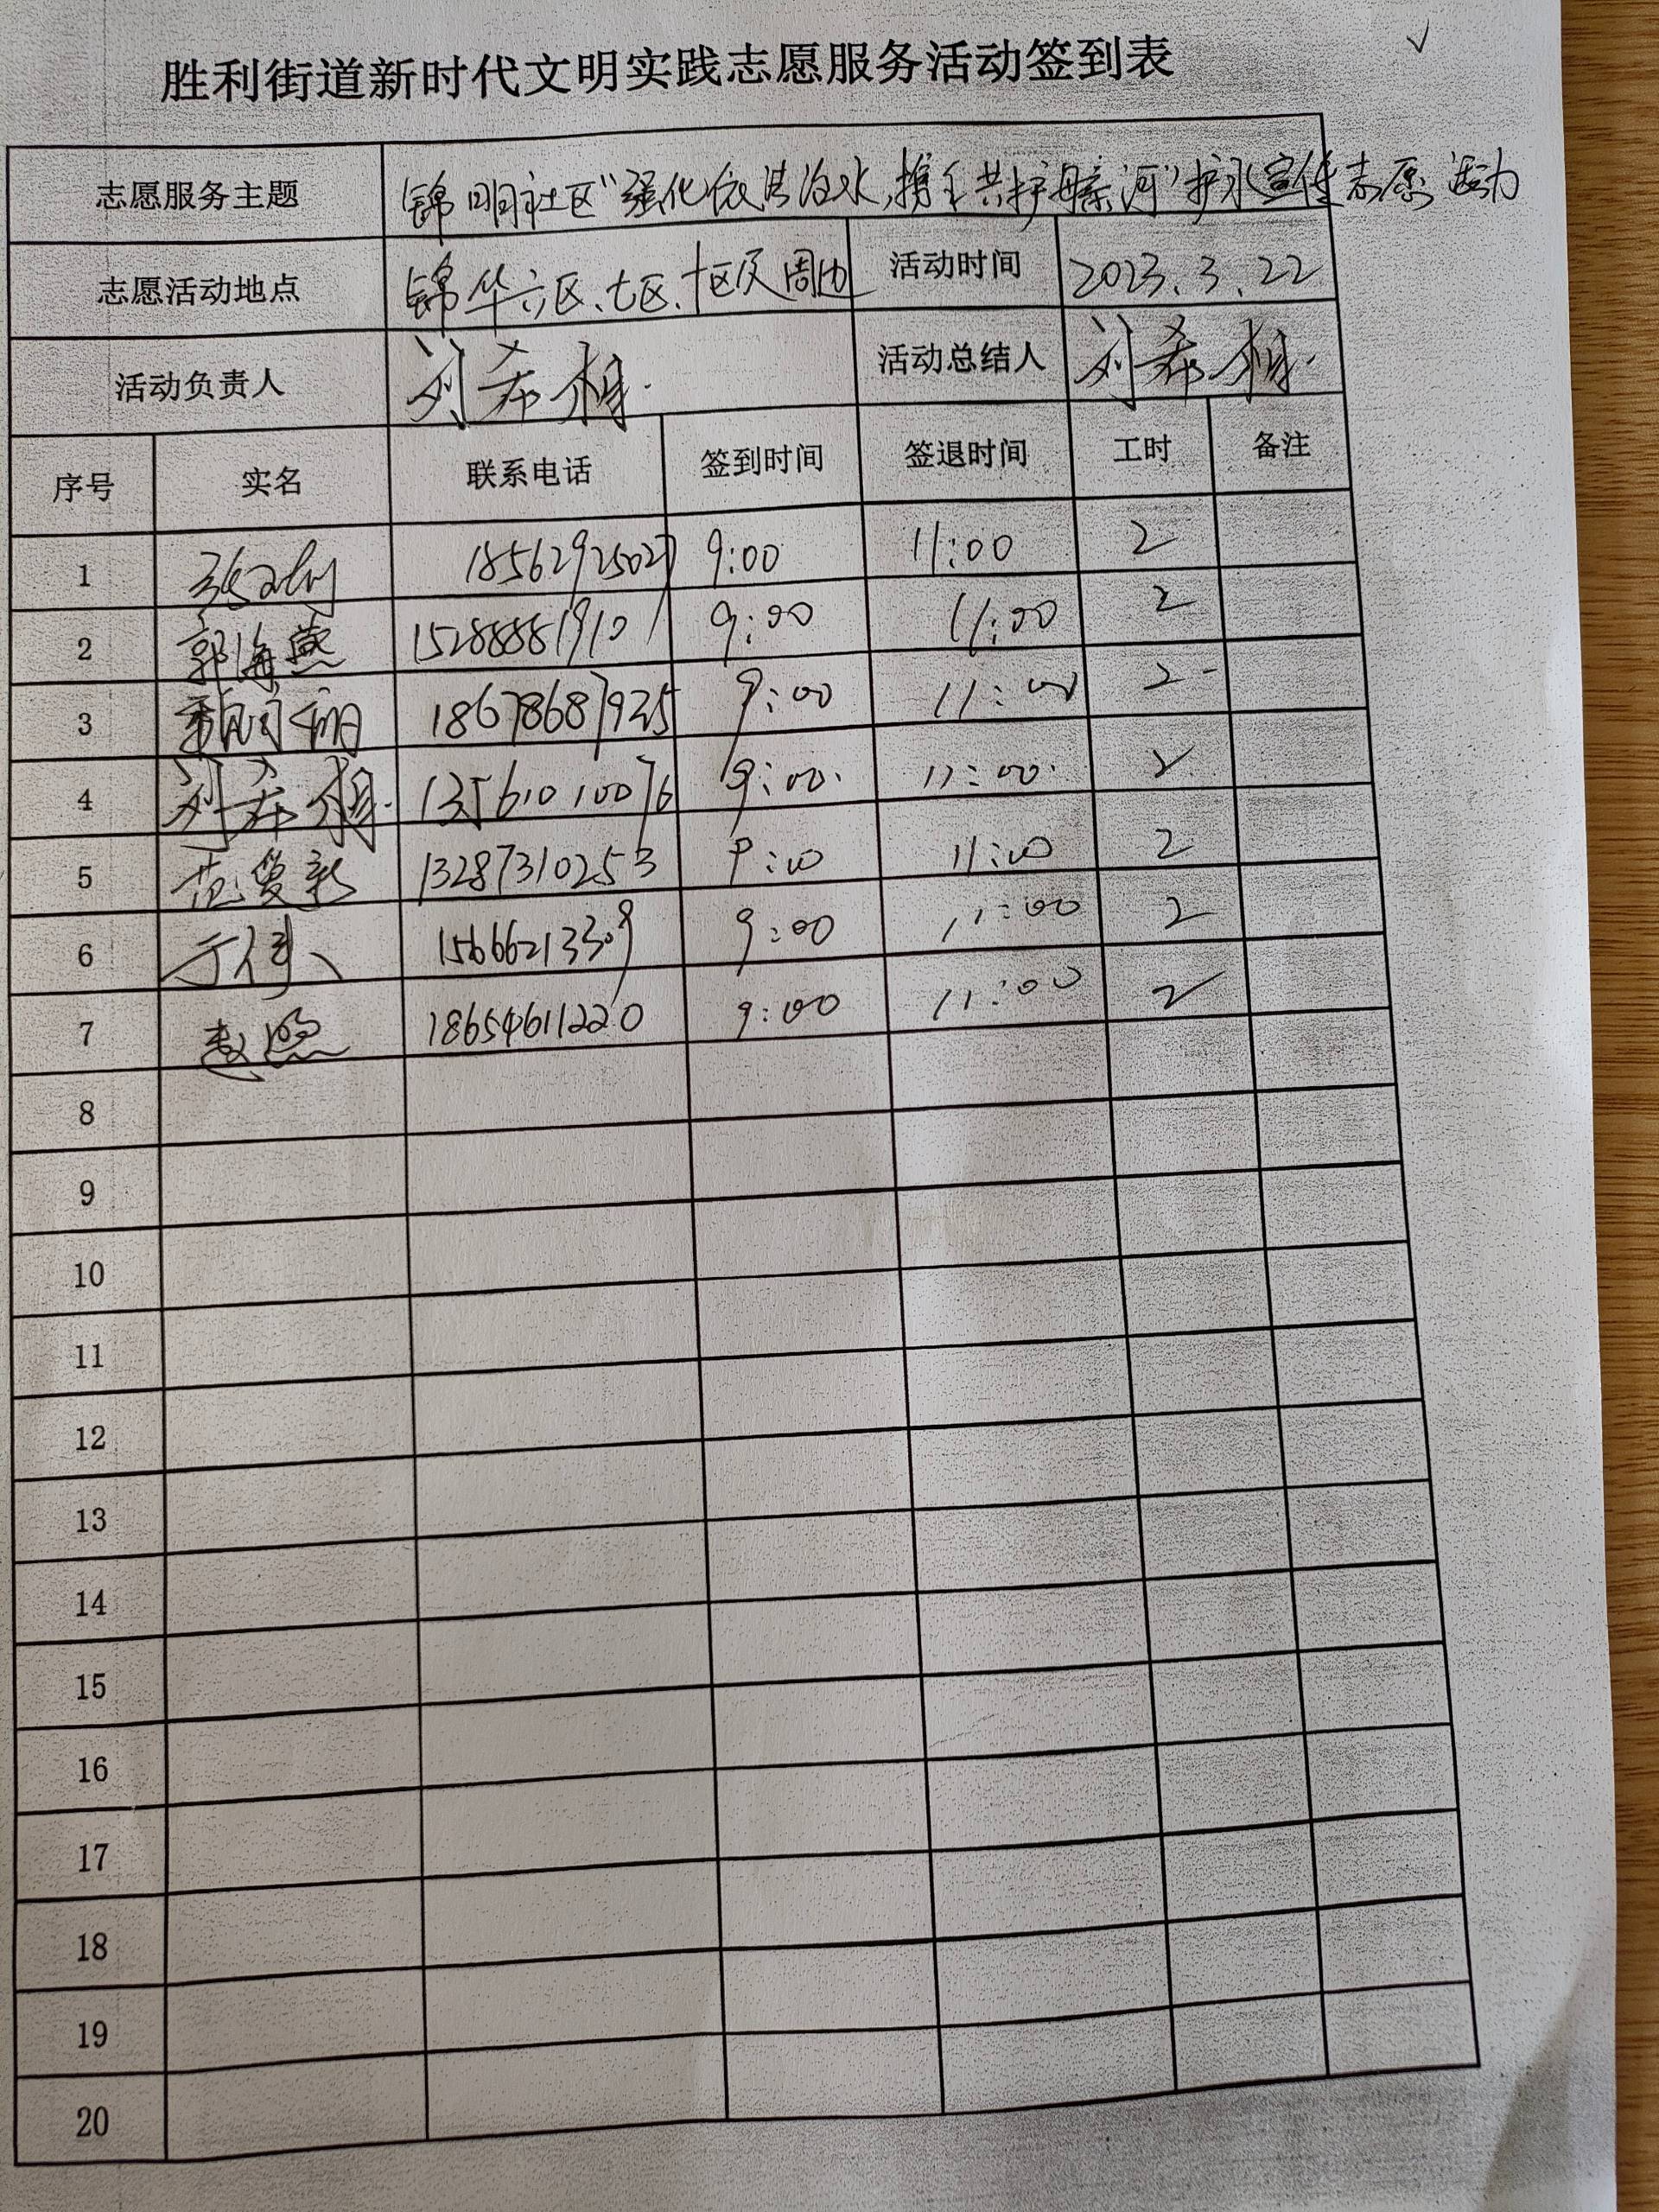 胜利街道新时代文明实践志愿服务活动签到表
志愿服务主题 锦明社区“强化依法治水,携手共护母亲河”护水宣传志愿活动
志愿活动地点 锦华六区、七区、十区及周边 活动时间 2023.3.22
活动负责人 刘希相 活动总结人 刘希相
序号 实名 联系电话 签到时间 签退时间 工时 备注
1 18562925027 9:00 11:00 2
2 郭海燕 15288881910 9:00 11:00 2
3 18678687925 9:00 11:00 2
4 刘希相 13561010076 9:00 11:00 2
5 范复新 13287310253 9:00 11:00 2
6 于伟 15666213309 9:00 11:00 2
7 赵煦 18654611220 9:00 11:00 2
8
9
10
11
12
13
14
15
16
17
18
19
20